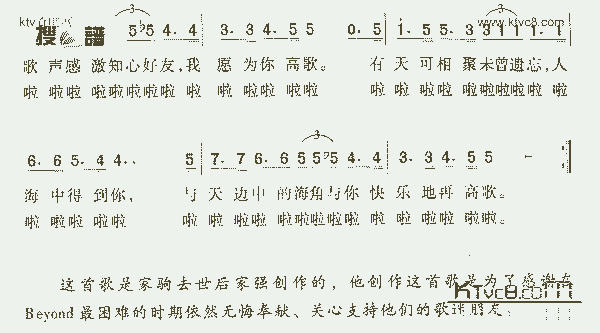 搜 谱 www.ktvc8.com
3 3
5 5 4. 4 3. 3 4. 5 5 0. 5 1. 5 5. 3 3 1 1 1. 1
歌 声感 激知心好友,我 愿 为你 高歌。 有 天 可相 聚未曾遗忘,人
啦 啦啦 啦啦啦啦啦 啦 啦 啦啦 啦啦 啦 啦 啦啦 啦啦啦啦啦 啦
3
6. 6 5. 4 4.. 5 7. 7 6. 6 5 5 5 4. 4 3. 3. 4. 5 5 -
海 中得 到你, 与 天 边中 的海角与你 快 乐地再 高歌。
啦 啦啦 啦啦 啦 啦 啦啦 啦啦啦啦啦 啦 啦啦啦 啦啦。
这首歌是家驹去世后家强创作的,他创作这首歌是为了感谢在
Beyond最困难的时期依然无悔奉献、关心支持他们的歌迷朋友。
KTvc8.com